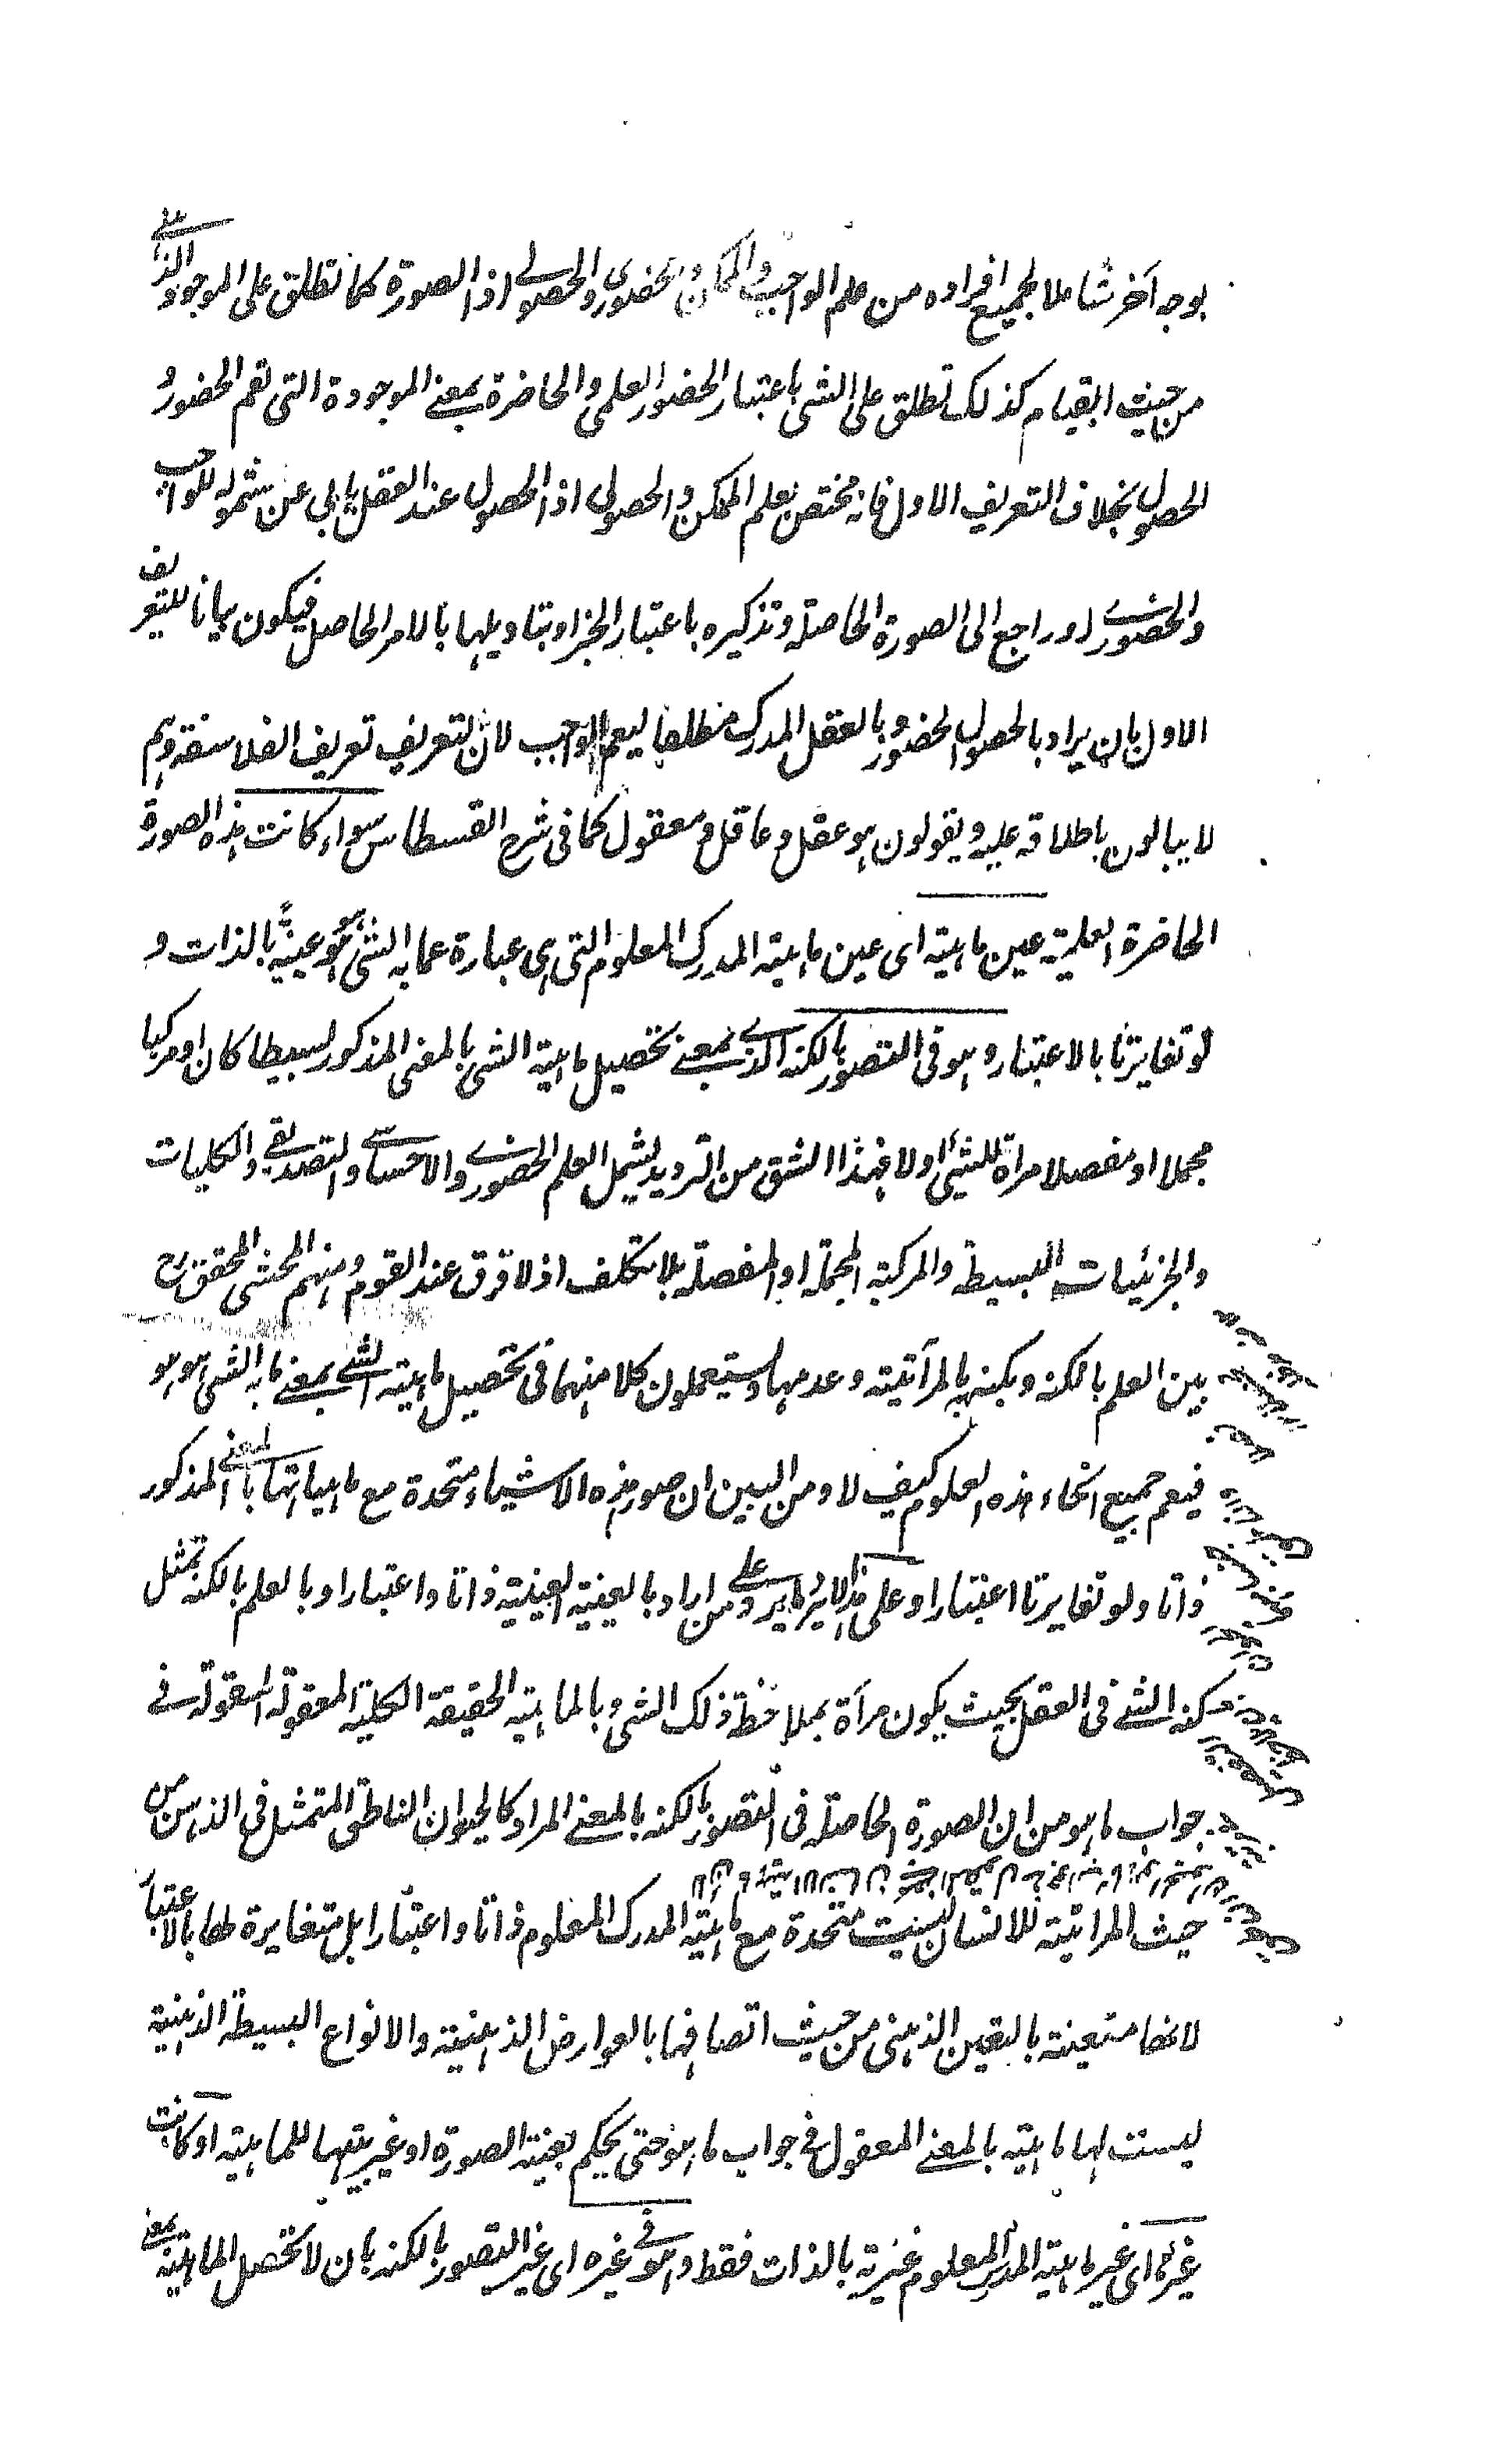 بوجه آخر شاملا لجميع افراده من علم الواجب والممكن والحضوري والحصولي اذ الصورة كما تطلق على الموجود الذهني
من حيث القيام كذلك تطلق على الشي باعتبار الحضور العلمي والحاضرة بمعنى الموجودة التي تعم الحضور و
الحصول بخلاف التعريف الاول فانه مختص بعلم الممكن والحصولي اذ الحصول عند العقل يابى عن شموله للواجب
والحضوري او راجع الى الصورة الحاصلة وتذكيره باعتبار الخبر او بتاويلها بالامر الحاصل فيكون بيانا للتعريف
الاول بان يراد بالحصول الحضور وبالعقل المدرك مطلقا ليعم الواجب لان التعريف تعريف الفلاسفة وهم
لا يبالون باطلاقه عليه ويقولون هو عقل وعاقل ومعقول كما في شرح القسطاس سواء كانت هذه الصورة
الحاضرة العلمية عين ماهيته اى عين ماهية المدرك المعلوم التي هي عبارة عما به الشئ هو هو عينية بالذات و
لو تغايرتا بالاعتبار وهو في التصور بالكنه الذي بمعنى تحصيل ماهية الشي بالمعنى المذكور بسيطا كان او مركبا
مجملا او مفصلا مراة للشئ اولا فهذا الشق من الترديد يشمل العلم الحضوري والاحساسي والتصديقي والكليات
والجزئيات البسيطة والمركبة المجملة او المفصلة بلا تكلف اذ لا فرق عند القوم ومنهم المحشى المحقق رح
بين العلم بالكنه وبكنهه بالمرآتية وعدمها ويستعملون كلا منهما في تحصيل ماهية الشئ بمعنى ما به الشي هو هو
فيعم جميع انحاء هذه العلوم كيف لا ومن البين ان صور هذه الاشياء متحدة مع ماهياتها بالمعنى المذكور
ذاتا ولو تغايرتا اعتبارا وعلى هذا لا يرد ما يرد على من اراد بالعينية العينية ذاتا واعتبارا وبالعلم بالكنه تمثل
كنه الشئ في العقل بحيث يكون مرآة بملاحظة ذلك الشي وبالماهية الحقيقة الكلية المعقولة المقولة في
جواب ما هو من ان الصورة الحاصلة في التصور بالكنه بالمعنى المراد كالحيوان الناطق المتمثل في الذهن من
حيث المراتية للانسان ليست متحدة مع ماهية المدرك المعلوم ذاتا واعتبارا بل متغايرة لها بالاعتبار
لانها متعينة بالتعين الذهني من حيث اتصافها بالعوارض الذهنية والانواع البسيطة الذهنية
ليست لها ماهية بالمعنى المعقول في جواب ما هو حتى يحكم بعينية الصورة او غيريتها للماهية او كانت
غيرها اى غير ماهية المدرك المعلوم غيرية بالذات فقط وهو في غيره اى غير التصور بالكنه بان لا تحصل الماهية بمعنى